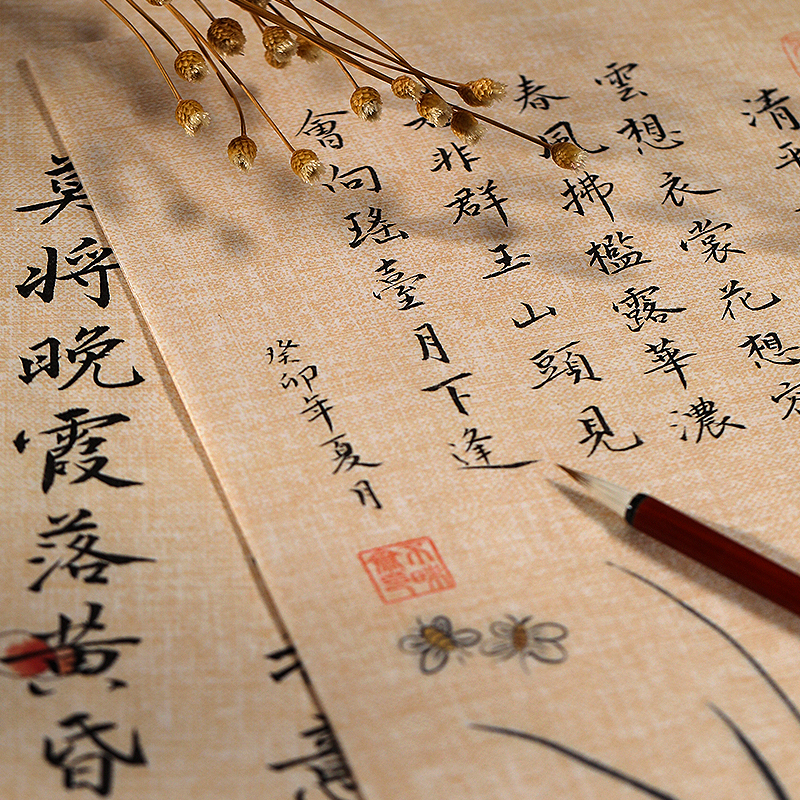 清平
雲想衣裳花想
春風拂檻露華濃
非群玉山頭見
會向瑤臺月下逢
癸卯年夏月
意
莫將晚霞落黄昏